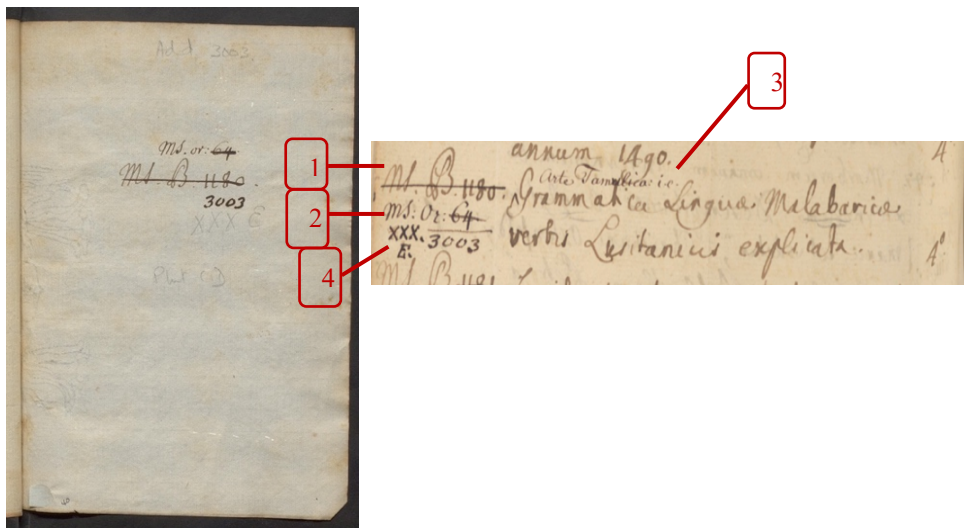 Add 3003
MS. or: 64
MS. B. 1180.
3003
XXX E
1
2
4
3
annum 1490.
4
MS. B. 1180. Arte Tamulica i.e.
Grammatica Linguæ Malabaricæ
MS: Or: 64
XXX. 3003 verbis Lusitanicis explicata.
4
E.
MS B 1181